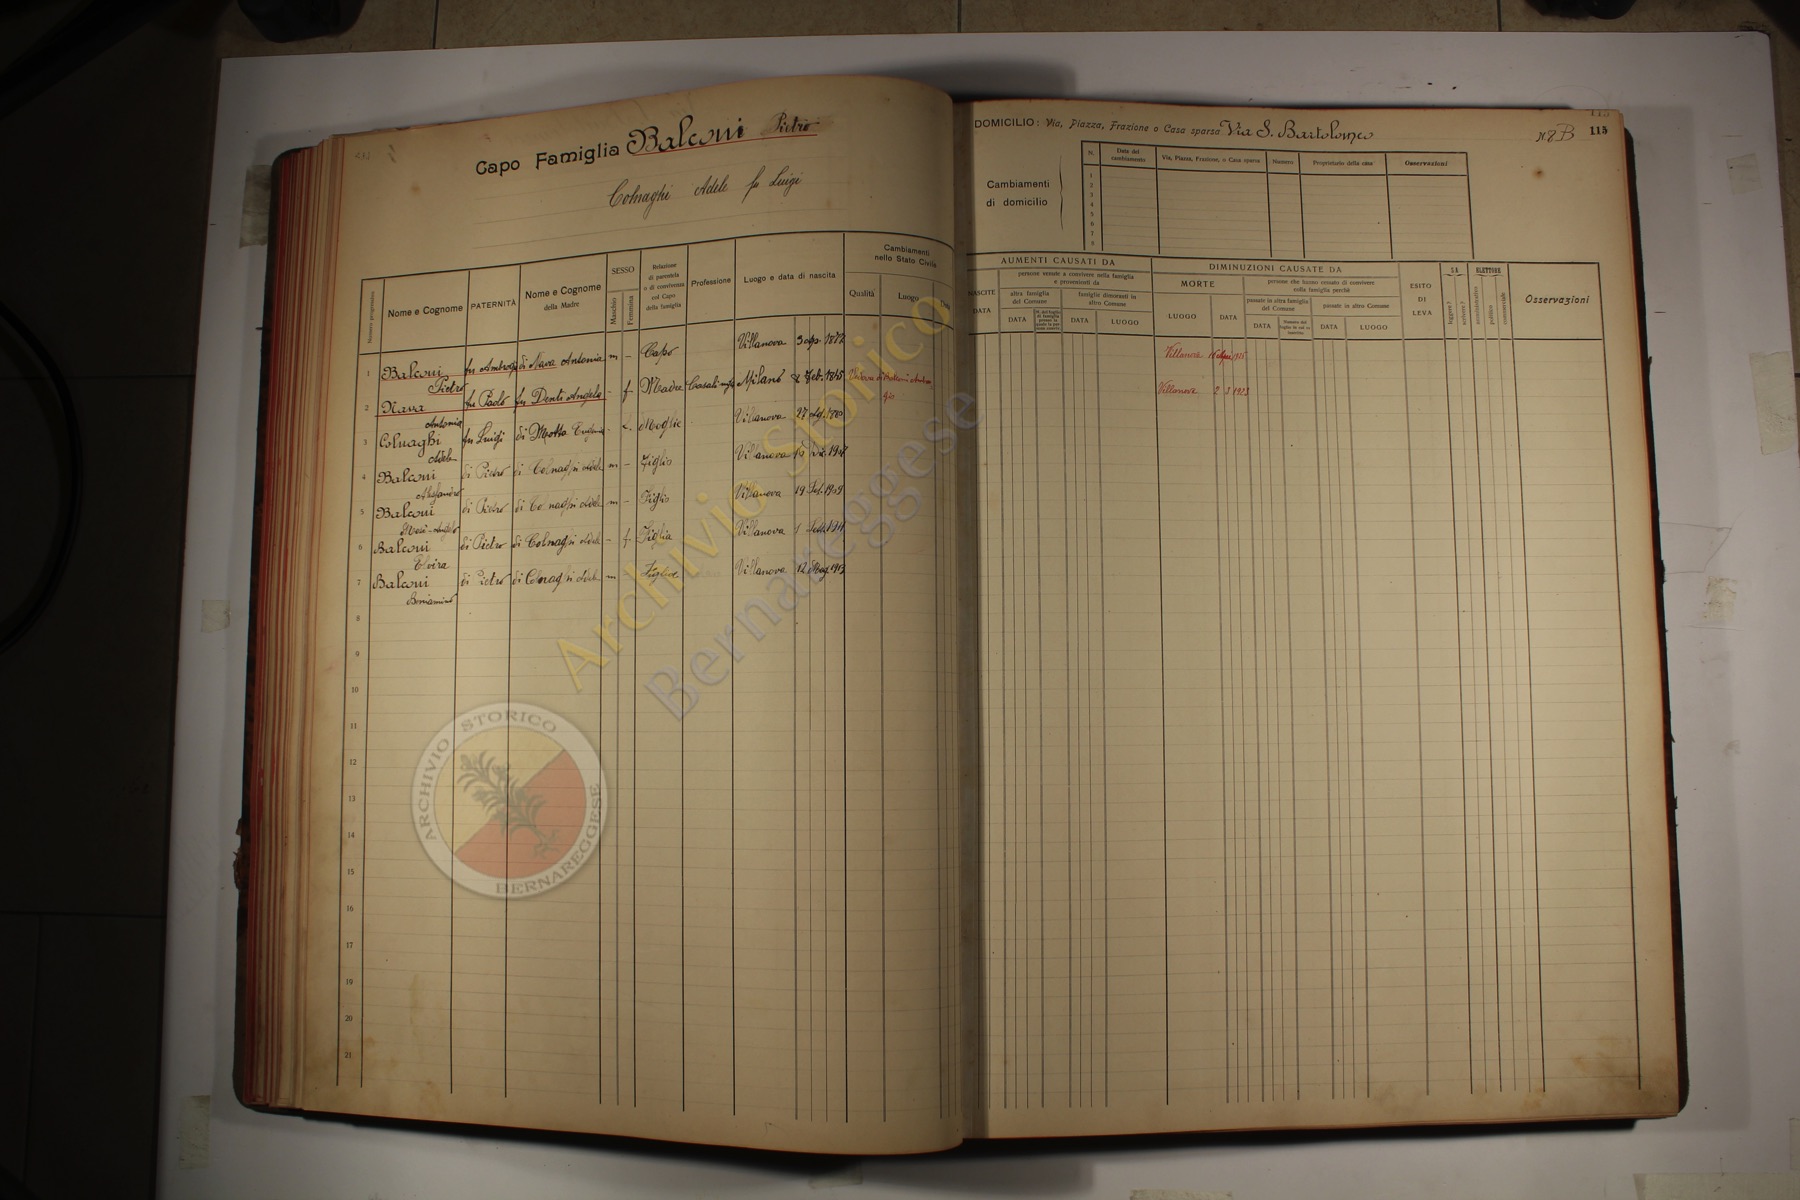 Capo Famiglia Balconi Pietro
Colnaghi Adele fu Luigi
Numero progressivo
Nome e Cognome
PATERNITÀ
Nome e Cognome
della Madre
SESSO
Maschio
Femmina
Relazione
di parentela
o di convivenza
col Capo
della famiglia
Professione
Luogo e data di nascita
Cambiamenti
nello Stato Civile
Qualità
Luogo
Data
1 Balconi fu Ambrogio di Nava Antonia m - Capo Villanova 1872
Pietro
2 Nava fu Paolo fu Denti Angela - f Madre Casalinga Milano Feb. 1845 Vedova di Balconi Ambro
Antonia gio
3 Colnaghi fu Luigi di Motta - Moglie Villanova 27 1880
Adele
4 Balconi di Pietro di Colnaghi Adele m - Figlio Villanova
Alessandro
5 Balconi di Pietro di Colnaghi Adele m - Figlio Villanova 19 1909
6 Balconi di Pietro di Colnaghi Adele - f Figlia Villanova
Elvira
7 Balconi di Pietro di Colnaghi Adele m Figlio Villanova 12 Mag. 1913
Beniamino
8
9
10
11
12
13
14
15
16
17
18
19
20
21
DOMICILIO: Via, Piazza, Frazione o Casa sparsa Via S. Bartolomeo
N. 8 B
115
Cambiamenti
di domicilio
N.
Data del
cambiamento
Via, Piazza, Frazione, o Casa sparsa
Numero
Proprietario della casa
Osservazioni
1
2
3
4
5
6
7
8
AUMENTI CAUSATI DA
NASCITE
DATA
persone venute a convivere nella famiglia
e provenienti da
altra famiglia
del Comune
DATA
famiglie dimoranti in
altro Comune
DATA
LUOGO
DIMINUZIONI CAUSATE DA
MORTE
LUOGO
DATA
persone che hanno cessato di convivere
colla famiglia perchè
passate in altra famiglia
del Comune
DATA
passate in altro Comune
DATA
LUOGO
ESITO
DI
LEVA
SA
leggere?
scrivere?
ELETTORE
amministrativo
politico
commerciale
Osservazioni
Villanova
Villanova 2 3 1923
Archivio Storico
Bernareggese
ARCHIVIO STORICO
BERNAREGGESE